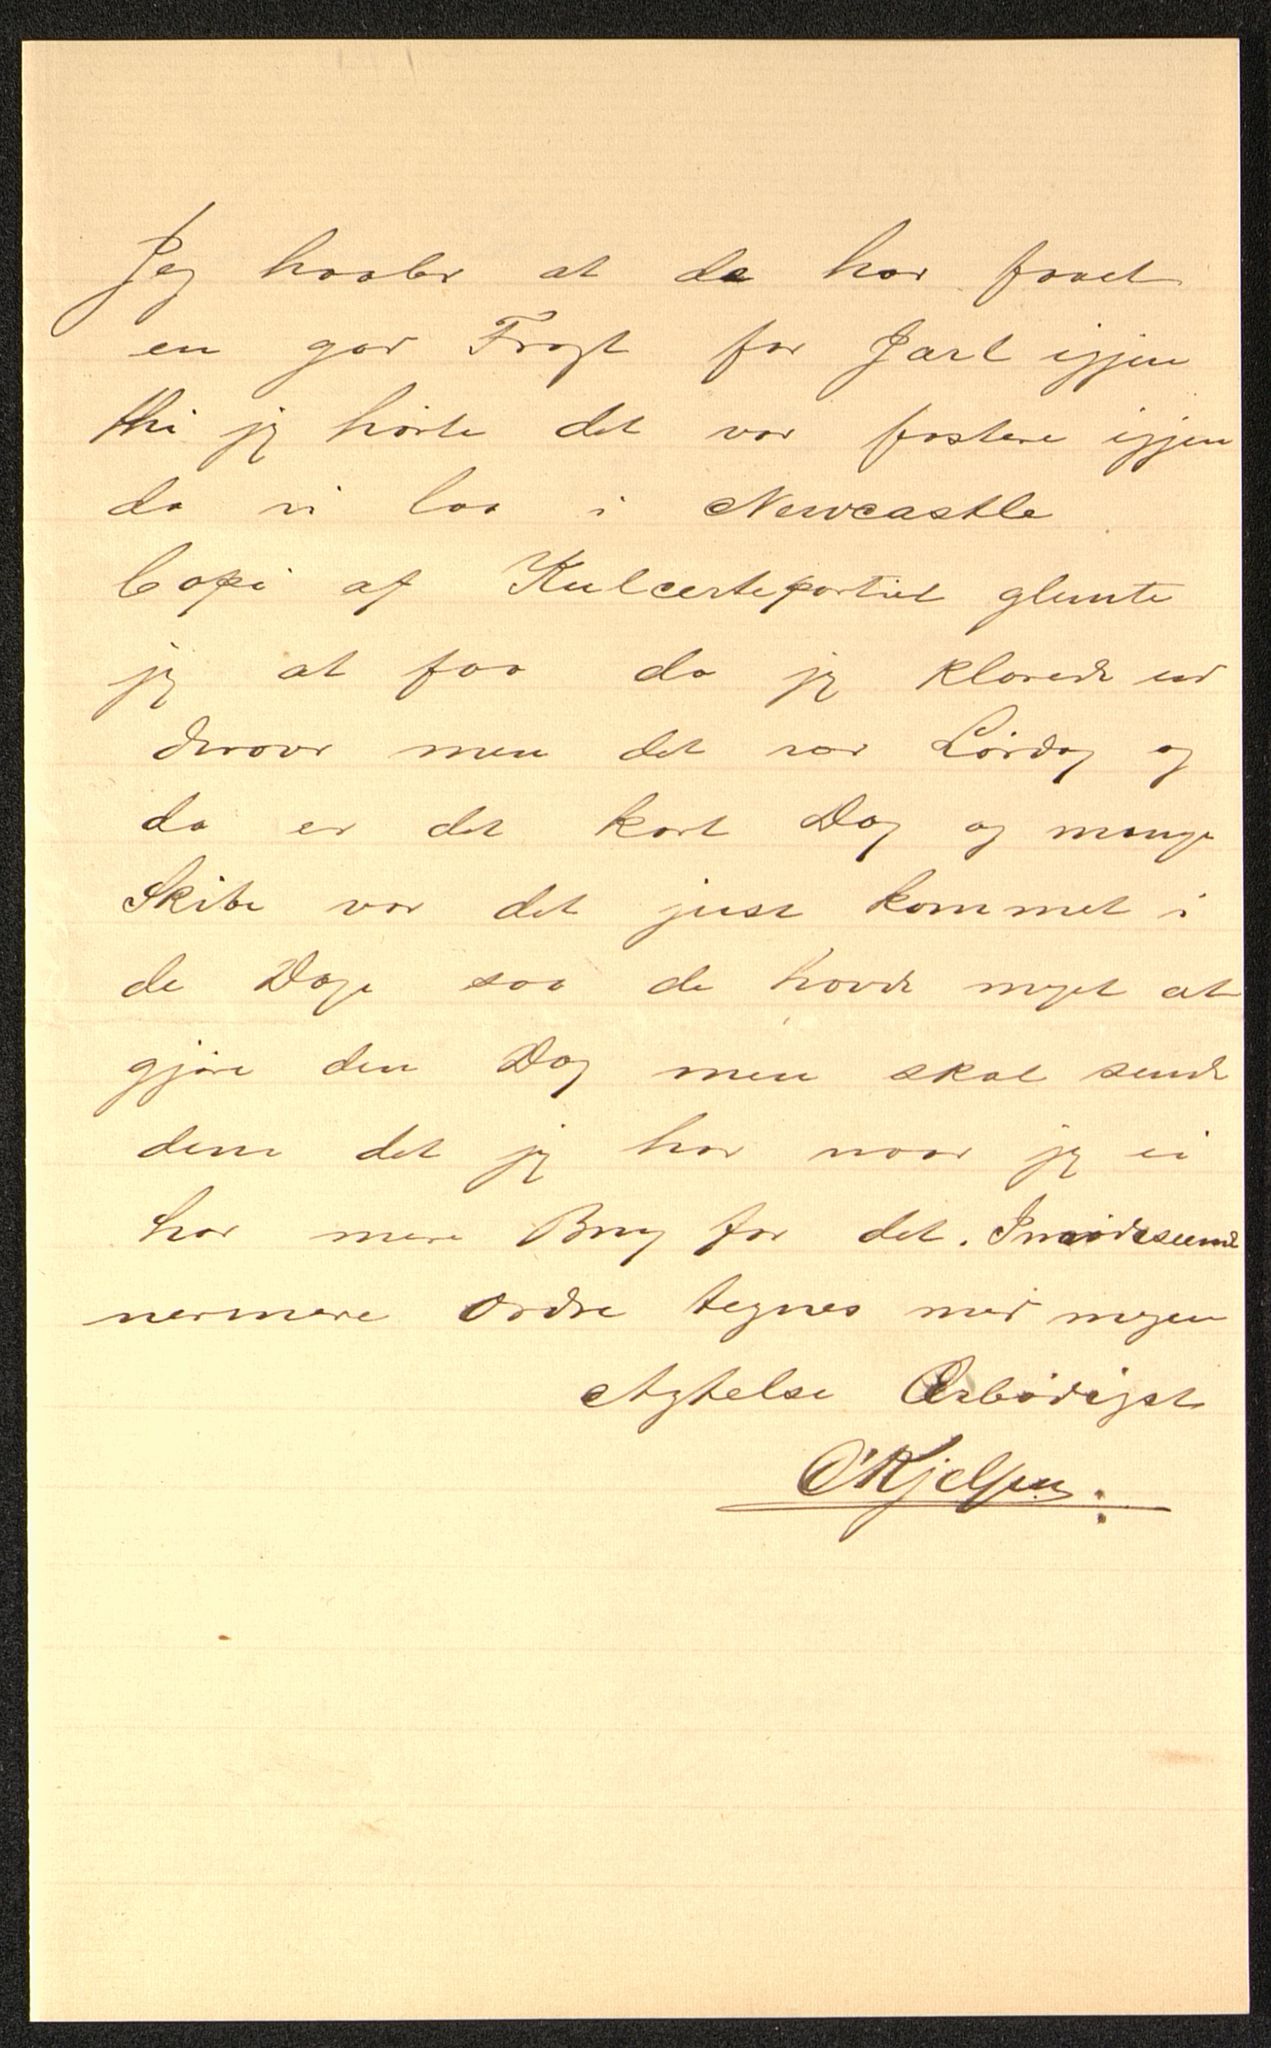 Jeg haaber at de har faaet
en god Fragt for Jarl igjen
thi jeg hørte det var fastere igjen
da vi laa i Newcastle
Copi af Kulcerteportiet glemte
jeg at faa da jeg klarede ud
derover men det var Lørdag og
da er det kort Dag og mange
Skibe var det just kommet i
de Dage saa de havde meget at
gjøre den Dag men skal sende
dem det jeg har naar jeg ei
har mere Brug for det. Imødeseende
nermere Ordre tegnes med megen
Agtelse Ærbødigst